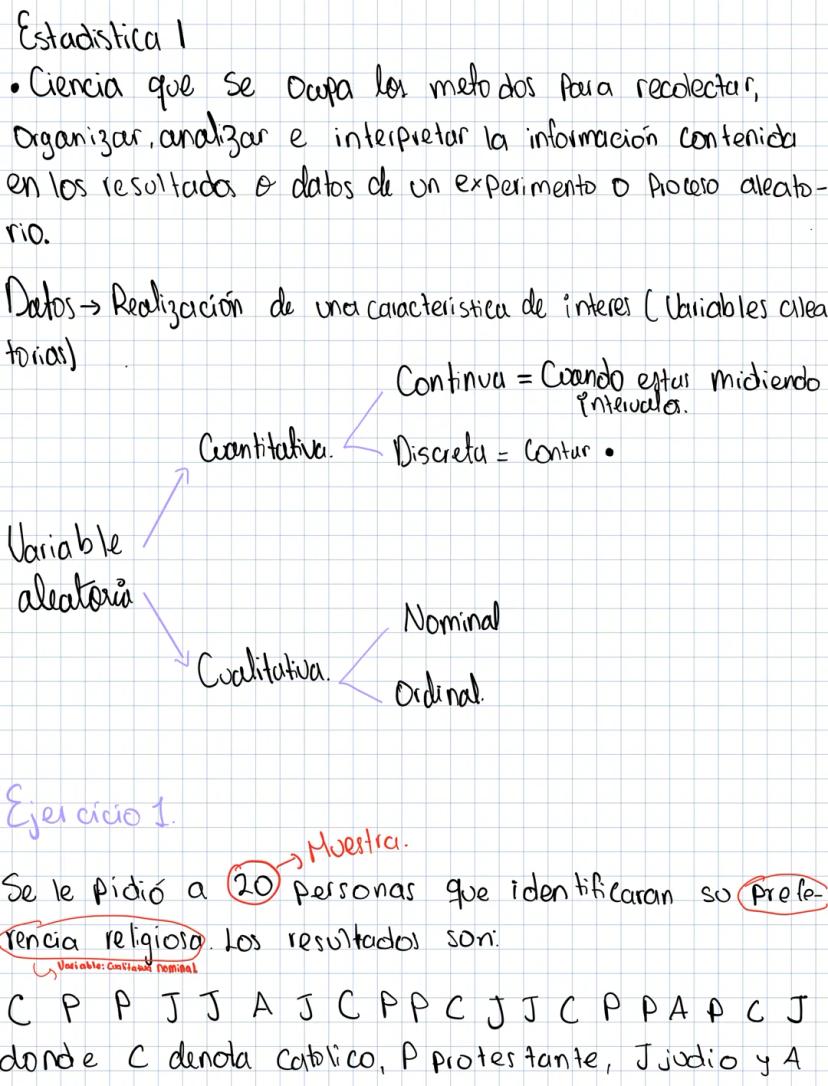 Estadistica 1
• Ciencia que se ocupa los metodos para recolectar,
Organizar, analizar e interpretar la información contenida
en los resultados o datos de un experimento o proceso aleato-
rio.
Datos → Realización de una caracteristica de interes (Variables alea
torias)
Continua = Cuando estas midiendo
intervalos.
Cuantitativa.
Discreta = Contar •
Variable
aleatoria
Nominal
Cualitativa.
Ordinal.
Ejercicio 1.
Muestra.
Se le pidió a 20 personas que identificaran su prefe-
rencia religiosa. Los resultados son:
Variable: Cualitativa nominal
C P P J J A J C P P C J J C P P A P C J
donde C denota Catolico, P protestante, J judio y A